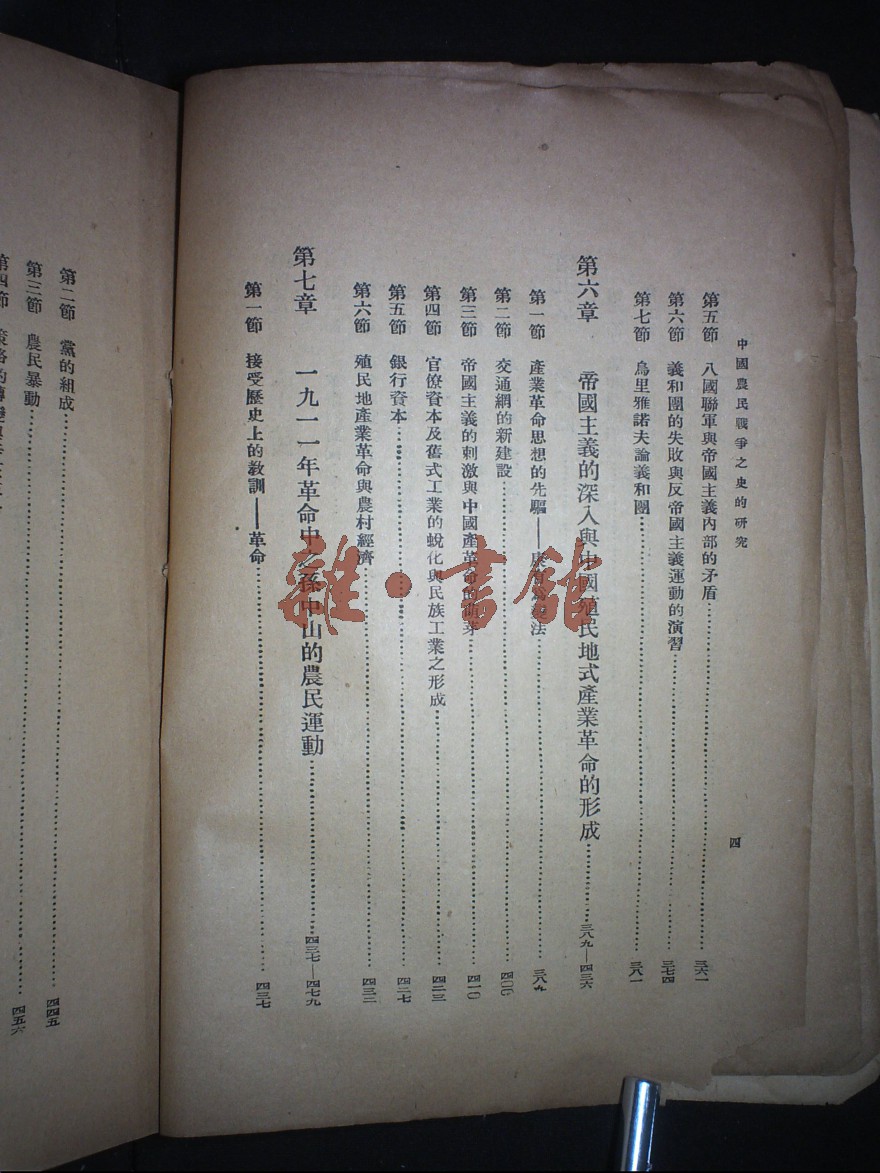 中國農民戰爭之史的研究
四
第五節 八國聯軍與帝國主義內部的矛盾 三六一
第六節 義和團的失敗與反帝國主義運動的演習 三七四
第七節 烏里雅諾夫論義和團 三八一
第六章 帝國主義的深入與中國殖民地式產業革命的形成 三八九—四三六
第一節 產業革命思想的先驅——康有爲變法 三八九
第二節 交通網的新建設 四〇〇
第三節 帝國主義的刺激與中國產革命的萌芽 四一〇
第四節 官僚資本及舊式工業的蛻化與民族工業之形成 四二三
第五節 銀行資本 四二七
第六節 殖民地產業革命與農村經濟 四三二
第七章 一九一一年革命中之孫中山的農民運動 四三七—四七九
第一節 接受歷史上的教訓——革命 四三七
第二節 黨的組成 四四五
第三節 農民暴動 四五六
第四節 策略的轉變與
雜·書館